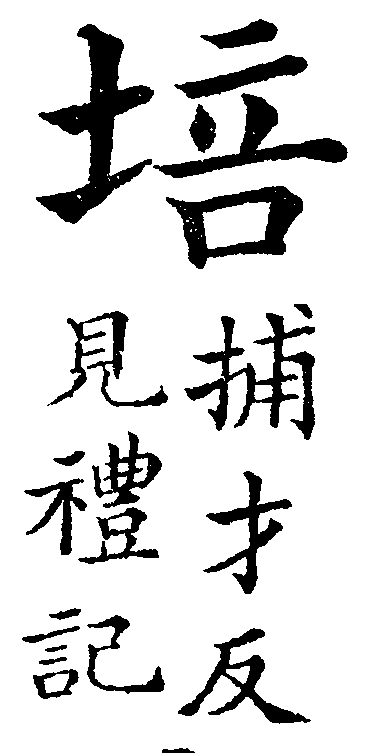 培
捕才反
見禮記